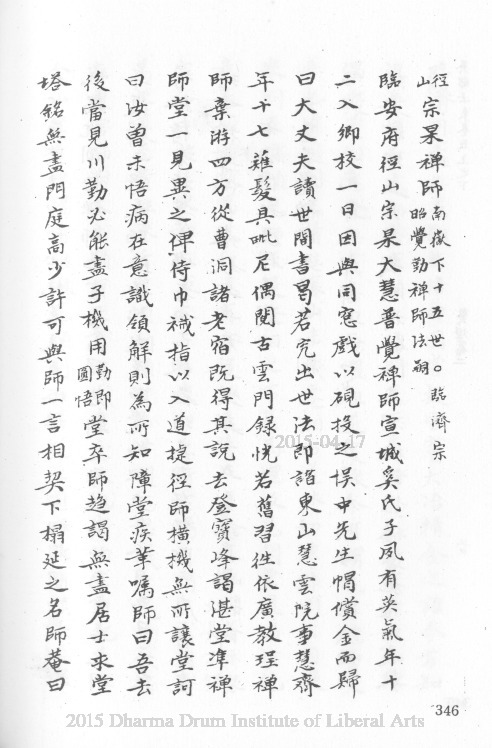 徑山宗杲禪師南嶽下十五世。臨濟宗昭覺勤禪師法嗣
臨安府徑山宗杲大慧普覺禪師宣城奚氏子夙有英氣年十
二入鄉校一日因與同窓戲以硯投之悮中先生帽償金而歸
曰大丈夫讀世間書曷若究出世法即詣東山慧雲院事慧齊
年十七薙髮具毗尼偶閱古雲門錄恍若舊習徃依廣教珵禪
師棄游四方從曹洞諸老宿既得其說去登寶峰謁湛堂準禪
師堂一見異之俾侍巾裓指以入道捷徑師橫機無所讓堂訶
曰汝曾未悟病在意識領解則為所知障堂疾革囑師曰吾去
後當見川勤必能盡子機用勤即圓悟堂卒師趨謁無盡居士求堂
塔銘無盡門庭高少許可與師一言相契下榻延之名師菴曰
2015-04-17
346
2015 Dharma Drum Institute of Liberal Arts